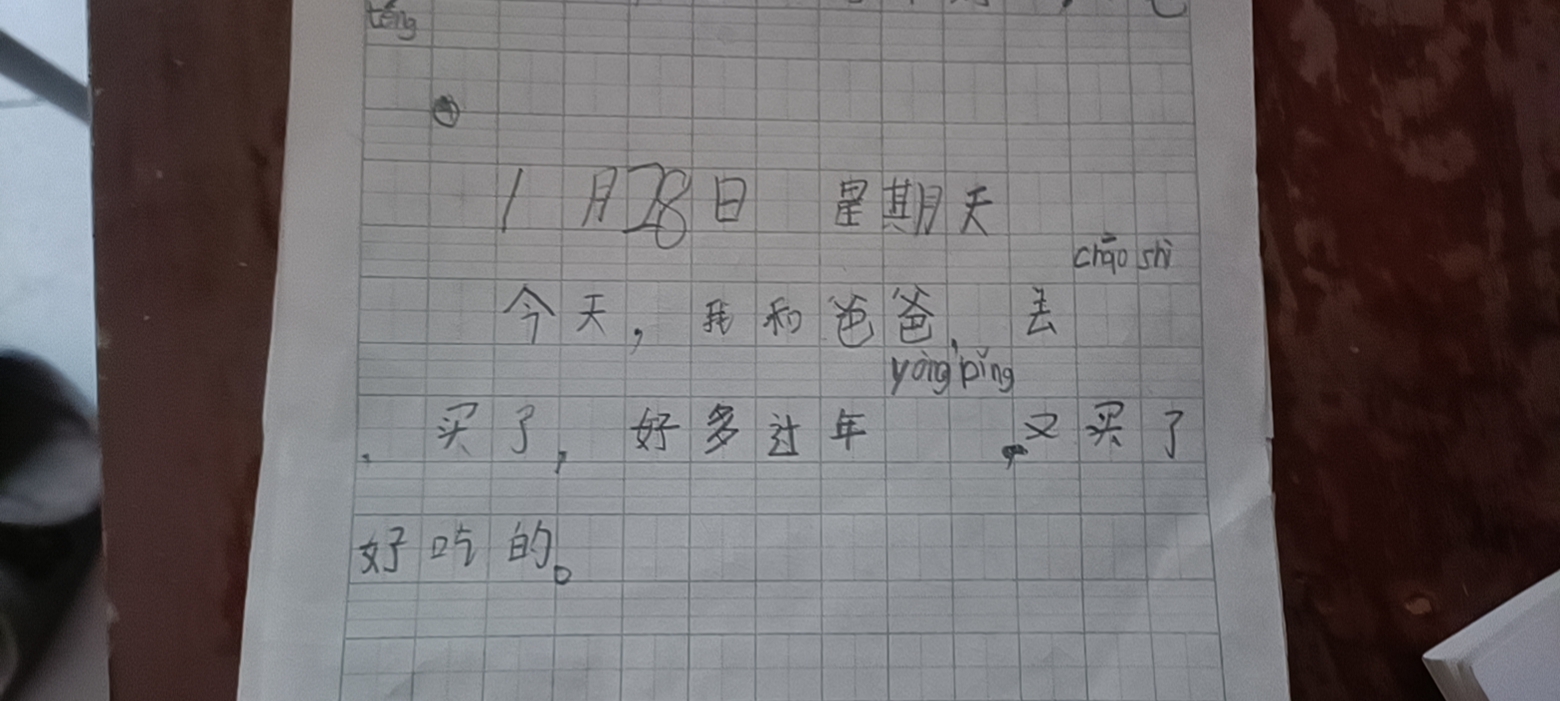 téng
1月28日 星期天
chāo shì
今天，我和爸爸，去
yòng pǐng
，买了，好多过年，又买了
好吃的。